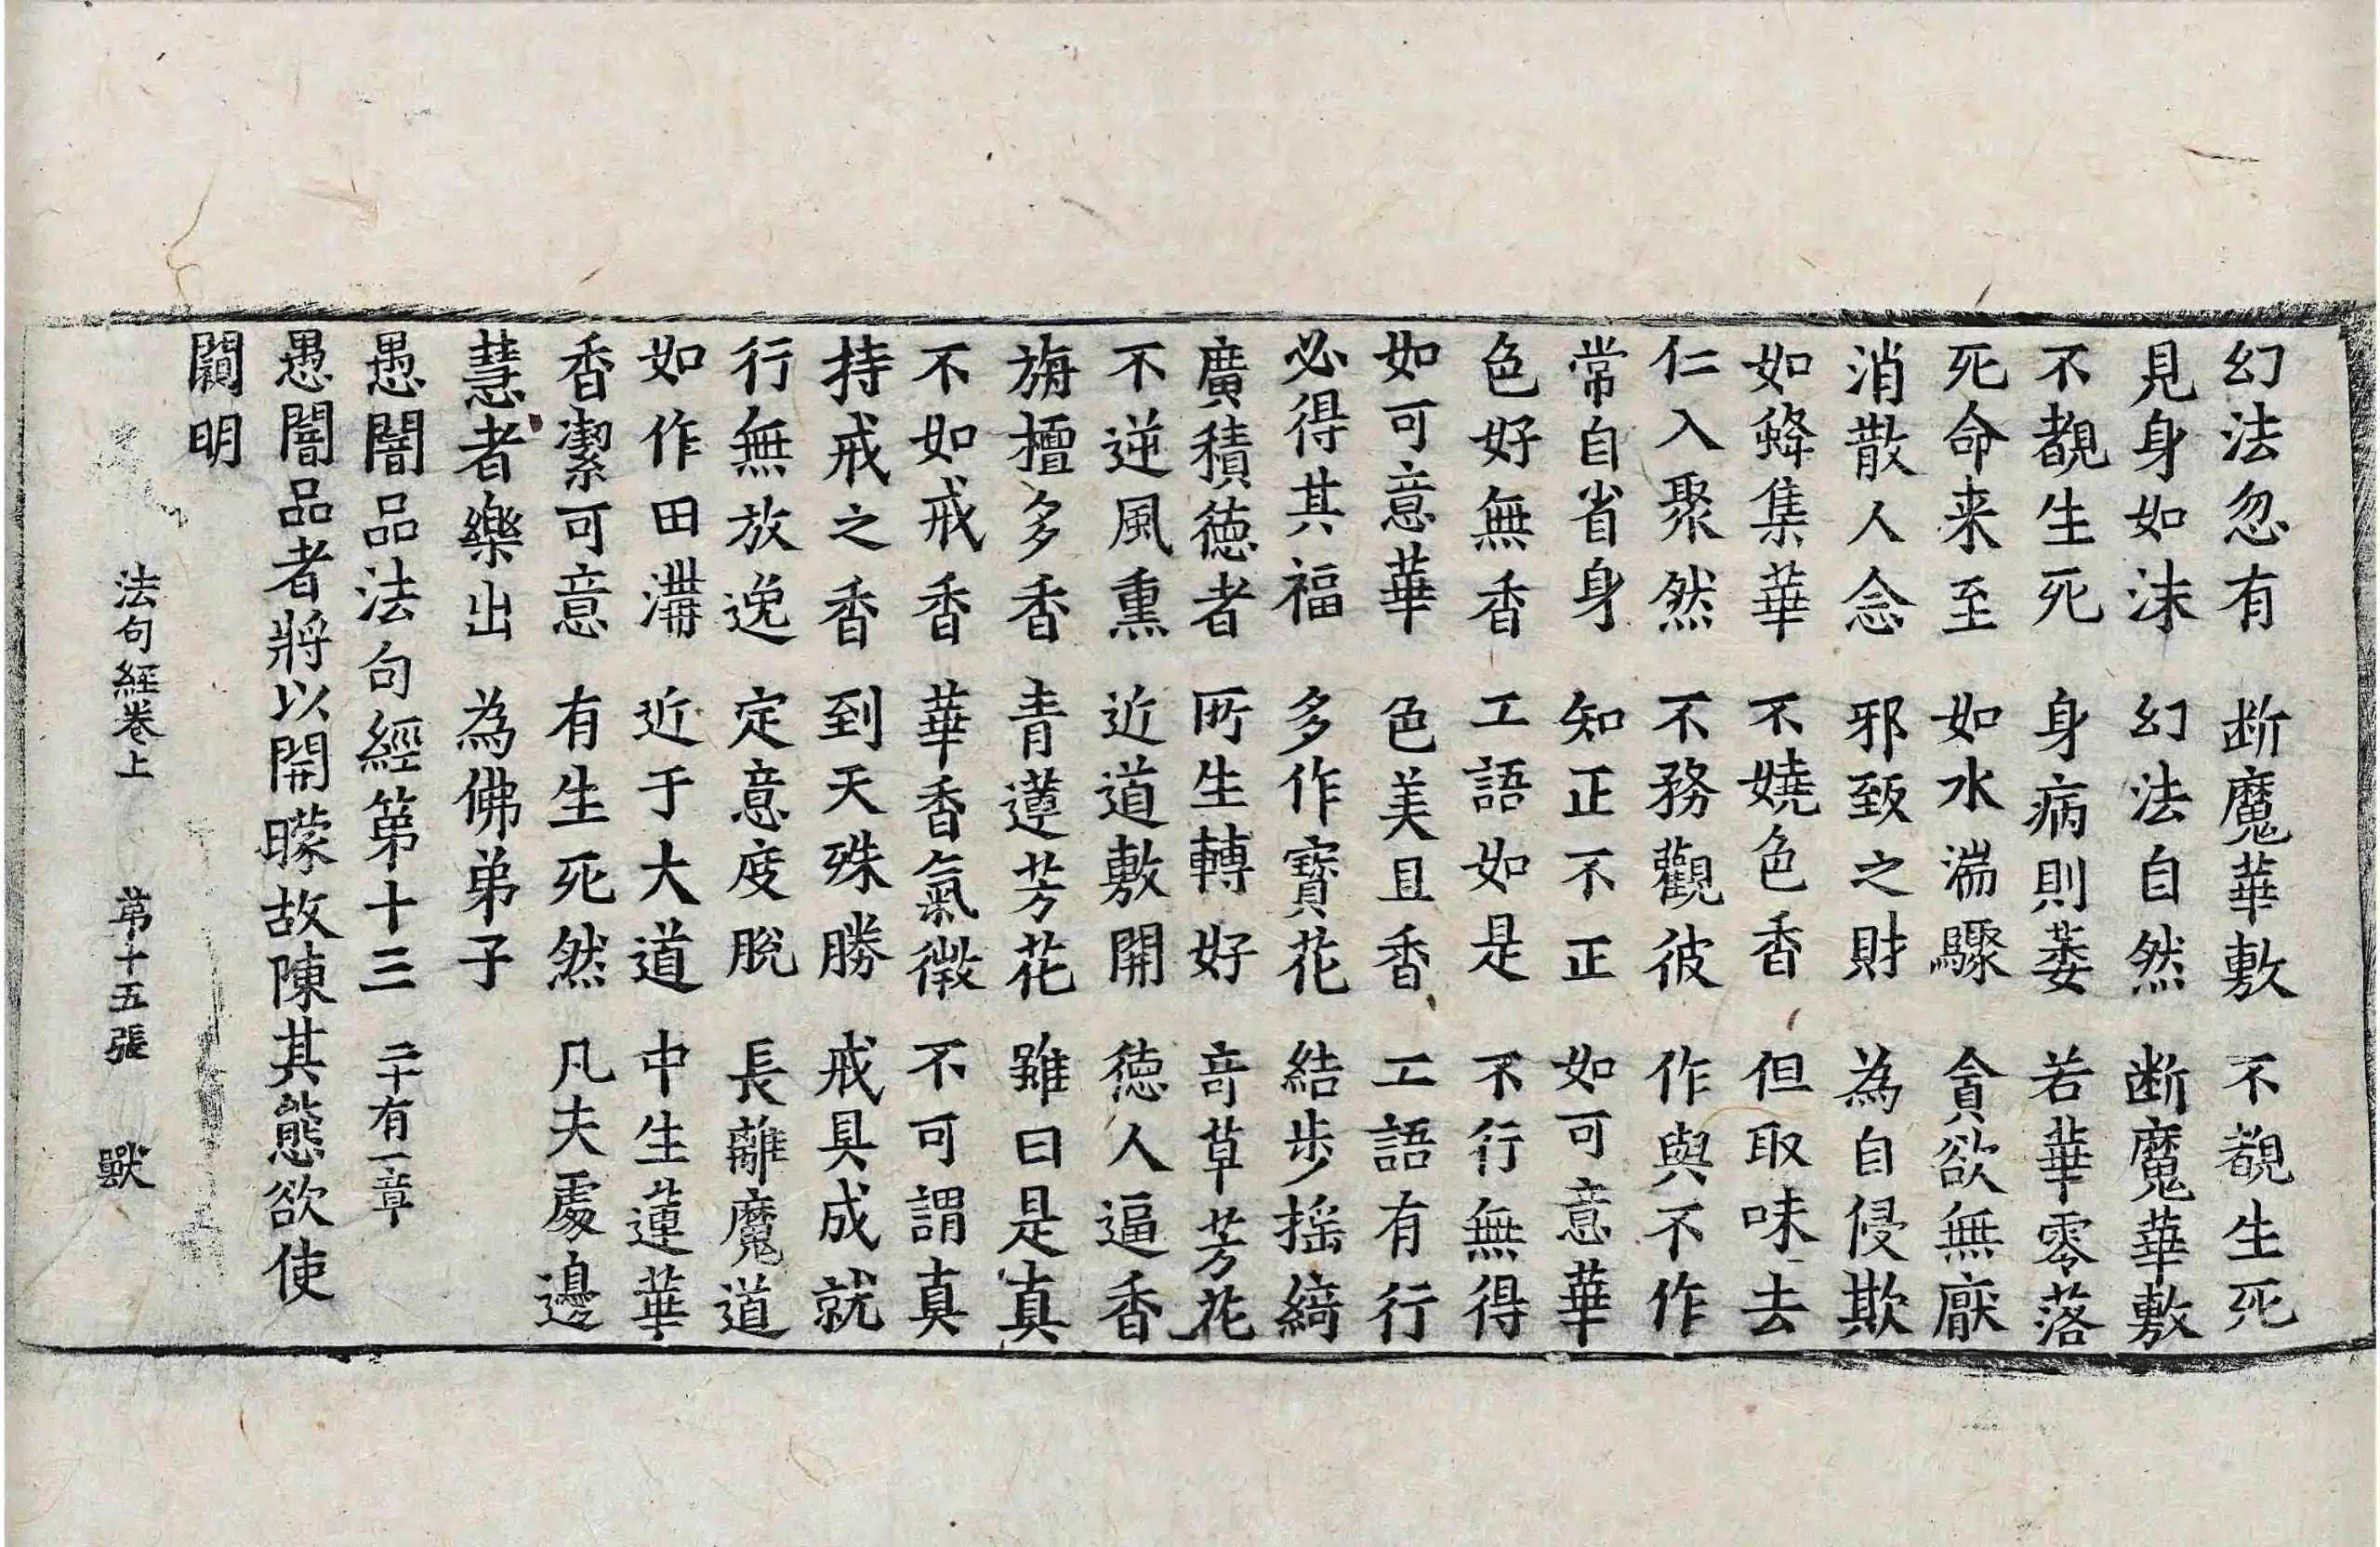 幻法忽有 断魔華敷 不覩生死
見身如沫 幻法自然 断魔華敷
不覩生死 身病則萎 若華零落
死命来至 如水湍驟 貪欲無厭
消散人念 邪致之財 為自侵欺
如蜂集華 不嬈色香 但取味去
仁入聚然 不務觀彼 作與不作
常自省身 知正不正 如可意華
色好無香 工語如是 不行無得
如可意華 色美且香 工語有行
必得其福 多作寶花 結步揺綺
廣積徳者 所生轉好 竒草芳花
不逆風熏 近道敷開 徳人逼香
旃檀多香 青蓮芳花 雖曰是真
不如戒香 華香氣微 不可謂真
持戒之香 到天殊勝 戒具成就
行無放逸 定意度脫 長離魔道
如作田溝 近于大道 中生蓮華
香潔可意 有生死然 凡夫處邊
慧者樂出 為佛弟子
愚闇品法句經第十三 二十有一章
愚闇品者將以開曚故陳其態欲使
闚明
法句經卷上 苐十五張 獸